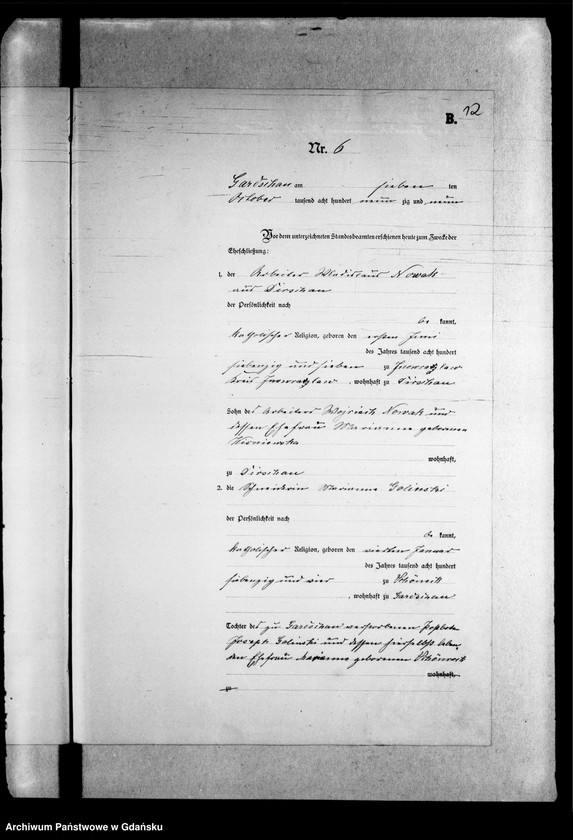 B. 12
Nr. 6
Gardschau am sieben ten
October tausend acht hundert neun zig und neun
Vor dem unterzeichneten Standesbeamten erschienen heute zum Zwecke der
Eheschließung:
1. der Arbeiter Wladislaus Nowak
aus Dirschau
der Persönlichkeit nach
be kannt,
katholischer Religion, geboren den ersten Juni
des Jahres tausend acht hundert
siebenzig und sieben zu Inowrazlaw
Kreis Inowrazlaw, wohnhaft zu Dirschau
Sohn des Arbeiters Wojciech Nowak und
dessen Ehefrau Marianna geborenen
Wisniewska
wohnhaft,
zu Dirschau
2. die Schneiderin Marianna Golinski
der Persönlichkeit nach
be kannt,
katholischer Religion, geboren den vierten Januar
des Jahres tausend acht hundert
siebenzig und vier zu Schöneck
, wohnhaft zu Gardschau
Tochter des zu Gardschau verstorbenen
Joseph Golinski und dessen hierselbst leben
den Ehefrau Marianna geborenen
wohnhaft,
zu
Archiwum Państwowe w Gdańsku